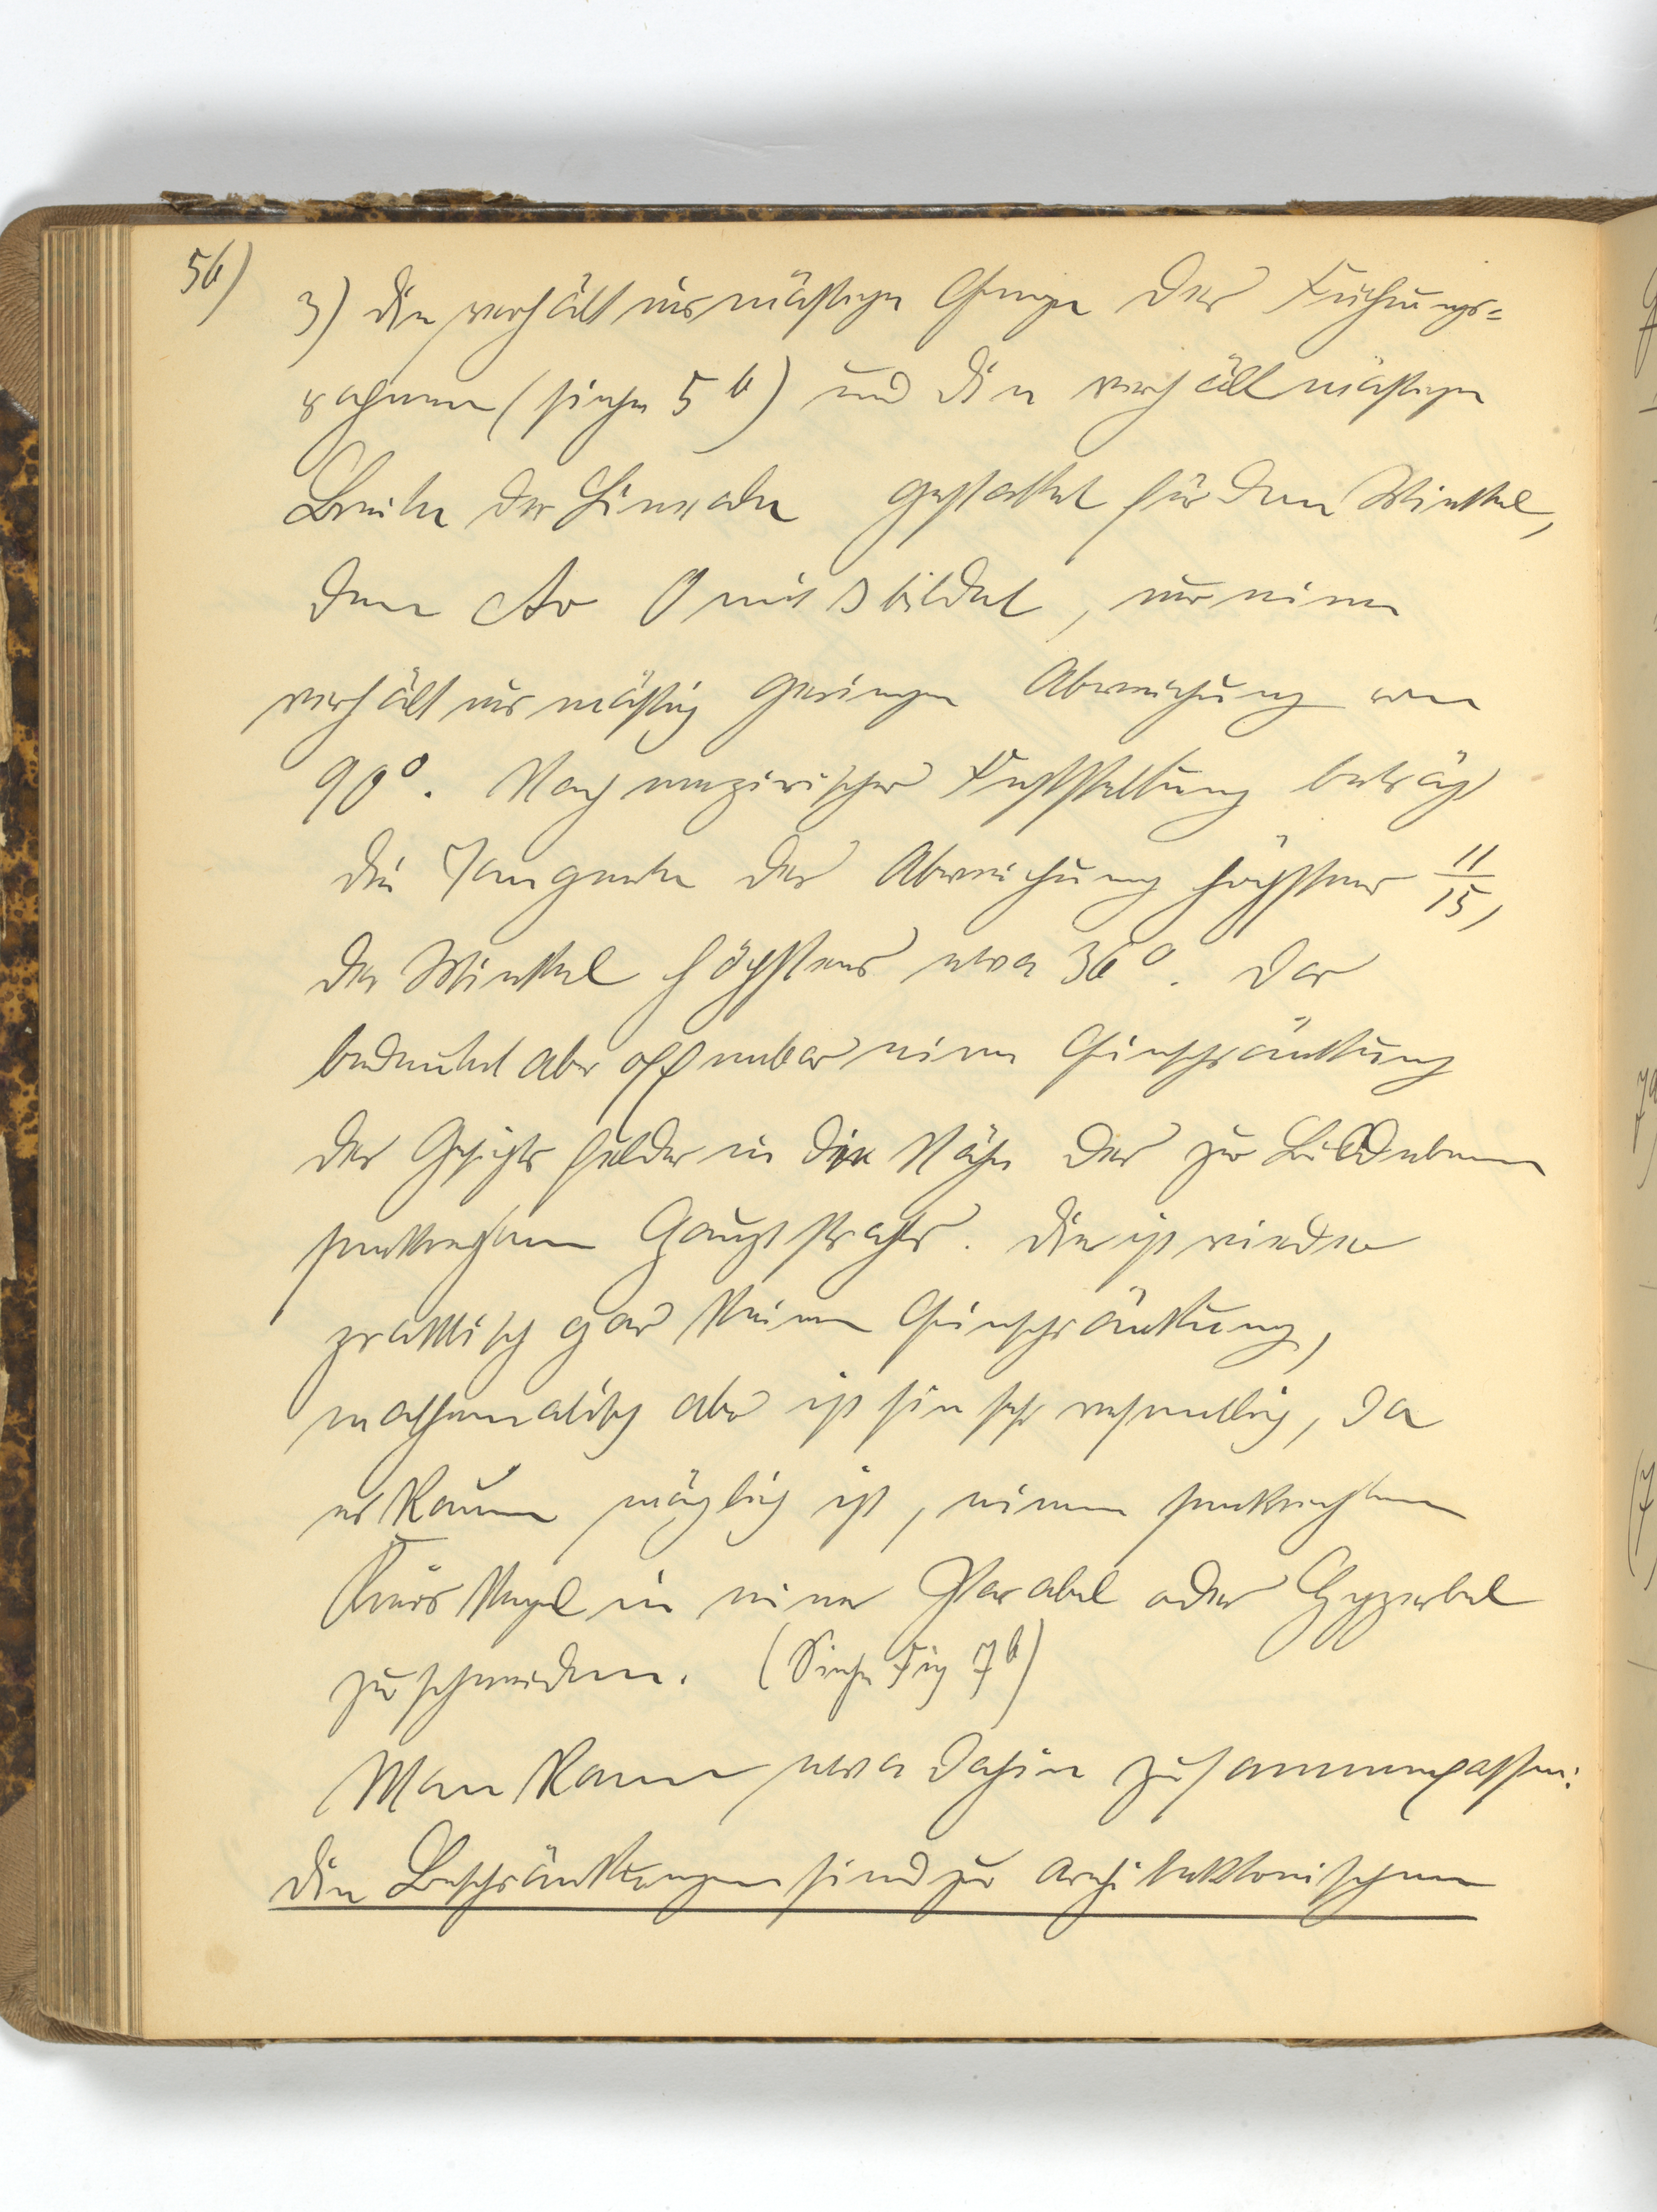 56)
3) Die verhältnismäßige Enge des Führungs-
rahmen (siehe 5b) und die verhältmäßige
Breite der Lineale gestattet für den Winkel,
den Ao O mit s bildet, nur eine
verhältnismäßig geringe Abweichung von
90°. Nach empirischer Feststellung beträgt
die Tangente der Abweichung höchstens 11/15,
der Winkel höchstens etwa 36°. Das
bedeutet aber offenbar eine Einschränkung
des Gesichtsfeldes in die Nähe des zur Bildebene
senkrechten Hauptstrahls. Dies ist wieder
praktisch gar keine Einschränkung,
mathematisch aber ist sie sehr wesentlich, da
es kaum möglich ist, einen senkrechten
Kreiskegel in einer Parabel oder Hyperbel
zu schneiden. (Siehe Fig 7b)
Man kann etwa dahin zusammenfassen:
Die Beschränkungen sind zur architektonischen